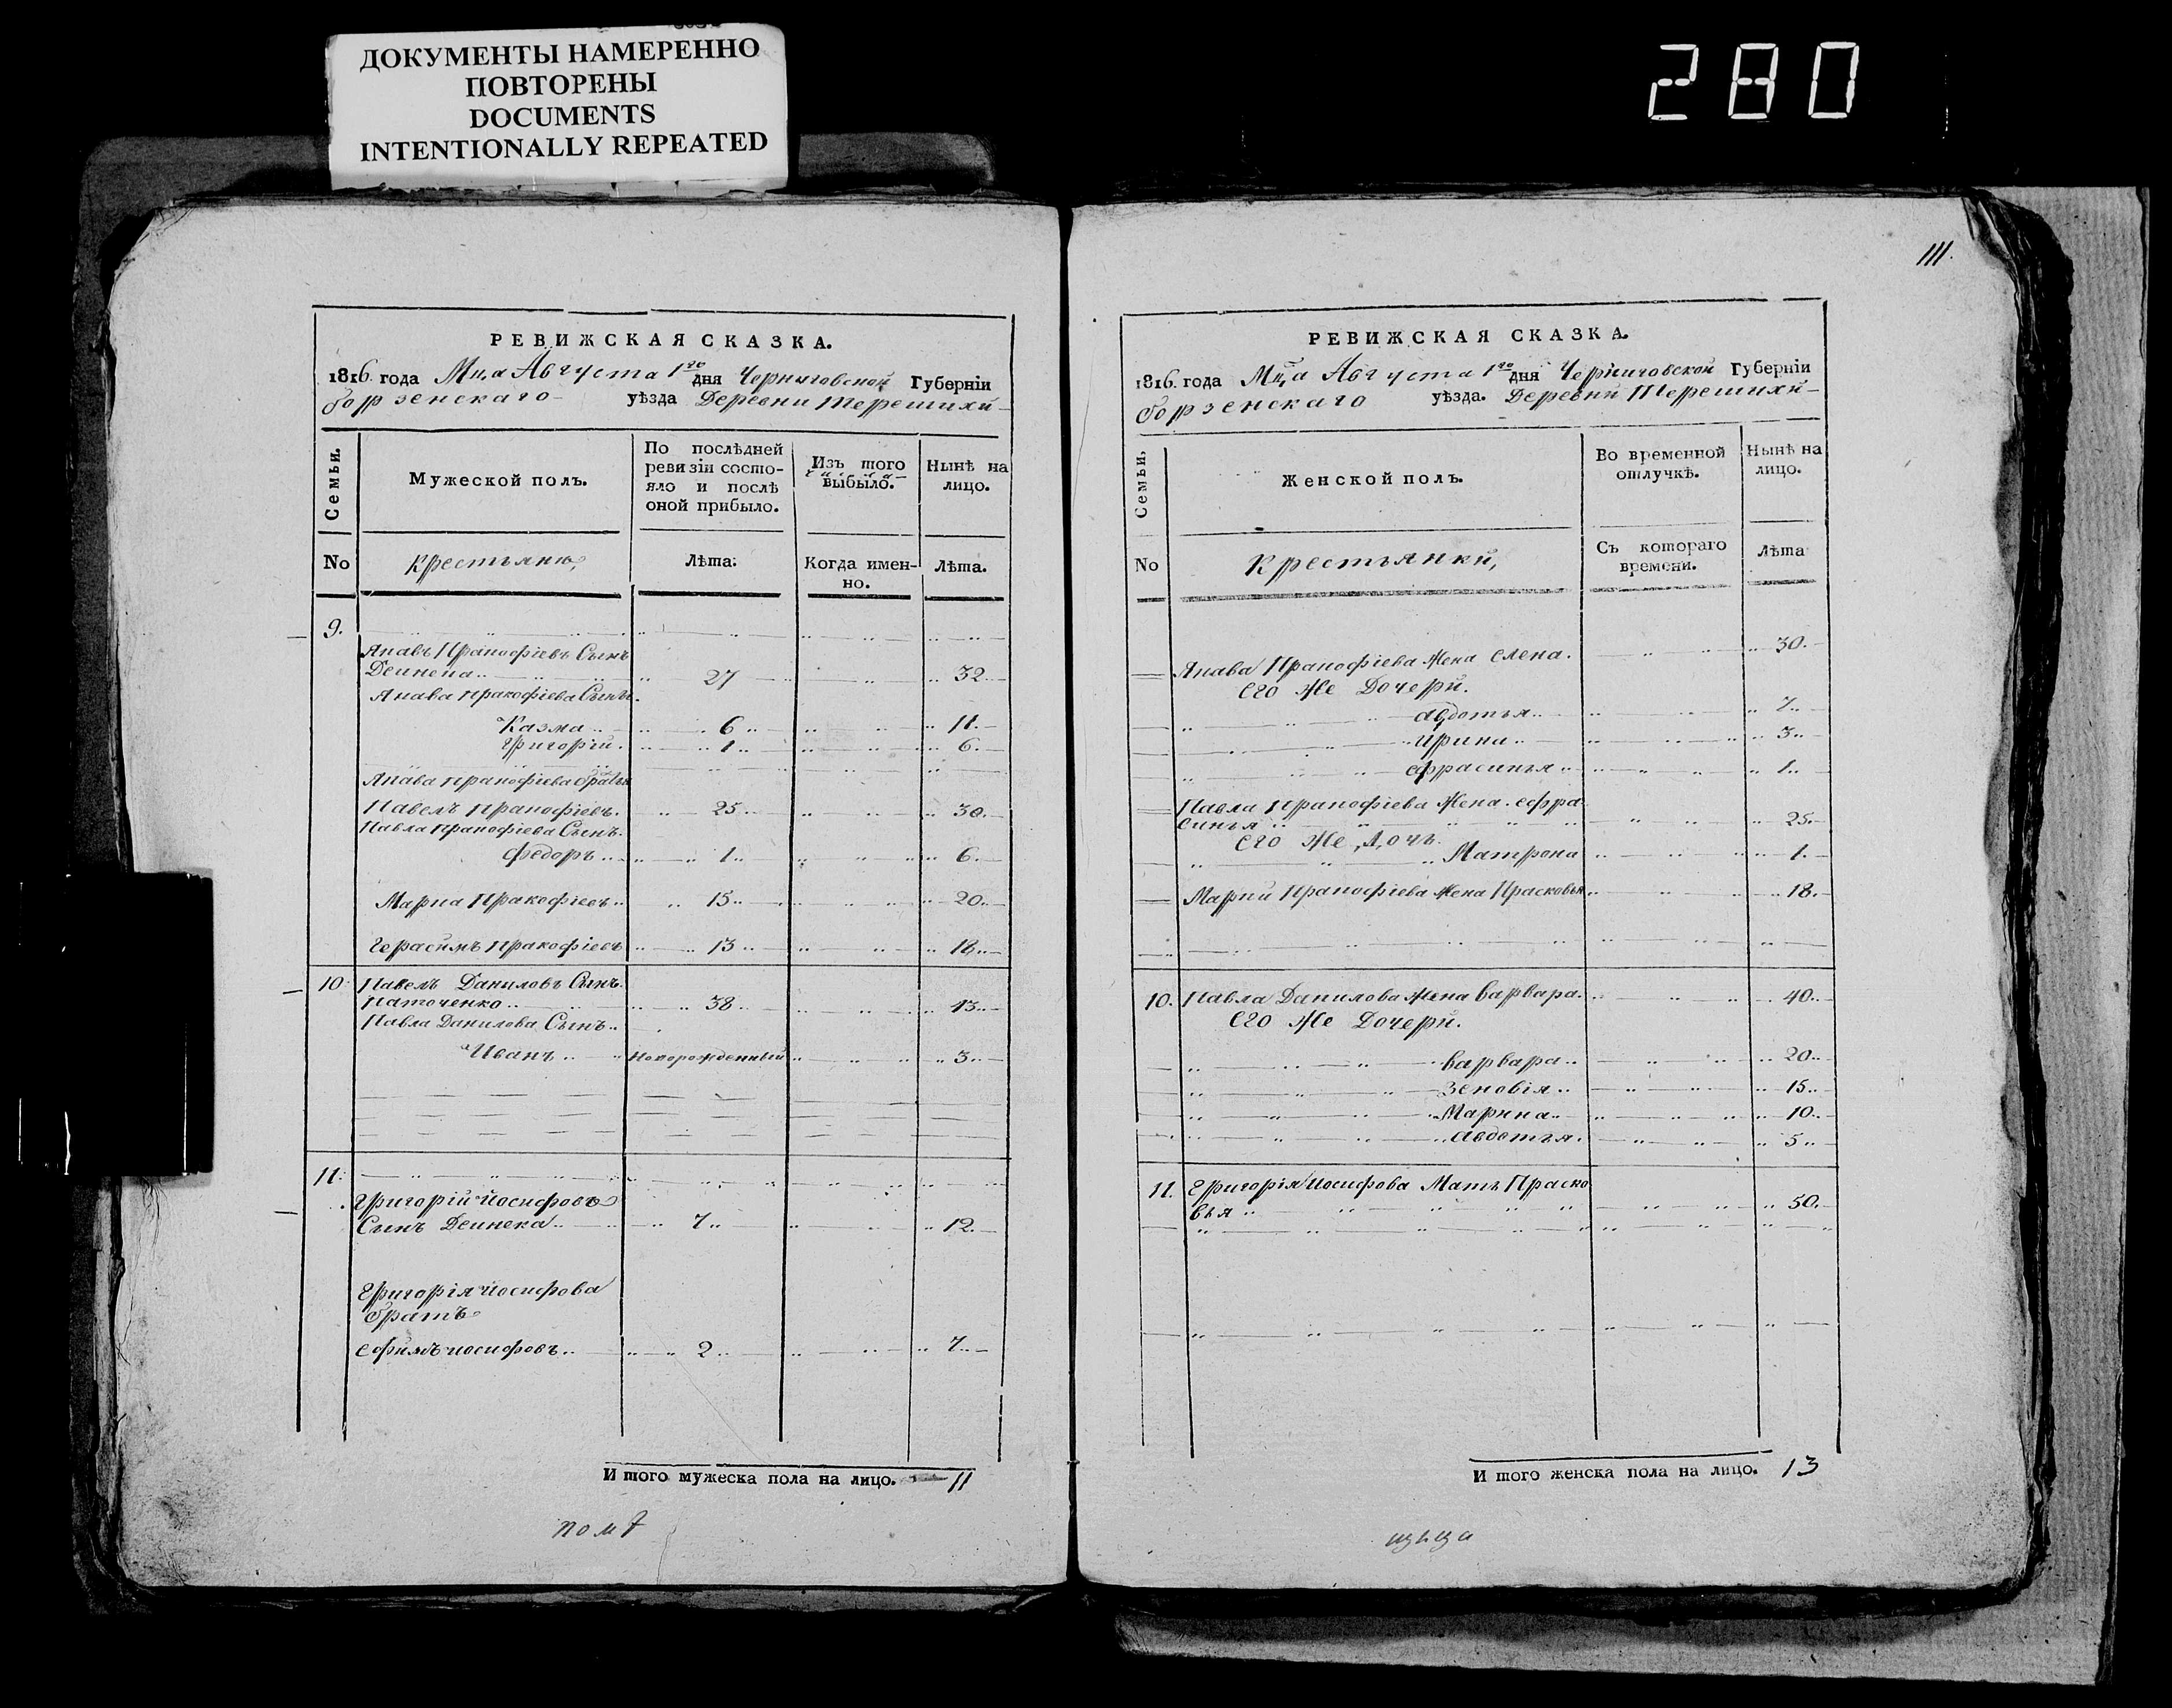 ДОКУМЕНТЫ НАМЕРЕННО
ПОВТОРЕНЫ
DOCUMENTS
INTENTIONALLY REPEATED
280
РЕВИЖСКАЯ СКАЗКА.
1816. года Мца Августа 1го дня Черниговской Губернїи
борзенскаго уѣзда Деревни Терешихи
Семьи.
Мужеской полъ.
По послѣдней
ревизїи состо-
яло и послѣ
оной прибыло.
Изъ того
выбыло.
Нынѣ на
лицо.
No
крестьяне
Лѣта.
Когда имен-
но.
Лѣта.
9.
Анавъ Пракофіевъ Сынъ
Деинека 27 32
Анава пракофіева Сынъ
Казма 6 11
Григорій 1 6
Анава пракофіева братья
Павелъ пракофіевъ 25 30
Павла пракофіева Сынъ
Федоръ 1 6
Марка Пракофіевъ 15 20
Герасимъ Пракофіевъ 13 18
10. Павелъ Даниловъ Сынъ
Наточенко 38 43
Павла Данилова Сынъ
Иванъ новорожденный 3
11.
Григорій иосифовъ
Сынъ Деинека 7 12
Григорія иосифова
братъ
ефимъ иосифовъ 2 7
И того мужеска пола на лицо. 11
помѣ
111.
РЕВИЖСКАЯ СКАЗКА.
1816. года Мца Августа 1го дня Черниговской Губернїи
борзенскаго уѣзда. Деревни Терешихи
Семьи.
Женской полъ.
Во временной
отлучкѣ.
Нынѣ на
лицо.
No
крестьянки,
Съ котораго
времени.
Лѣта
Анава Пракофіева жена елена. 30
его же Дочери.
авдотья 7
ирина 3
ефрасинья 1
Павла Пракофіева жена ефра
синья 25
его же Дочь
Матрона 1
Марки Пракофіева жена Прасковья 18
10. Павла Данилова жена варвара 40
его же Дочери.
варвара 20
Зеновія 15
Марина 10
авдотья 5
11. Григорія иосифова Мать Праско
вья 50
И того женска пола на лицо. 13
щица